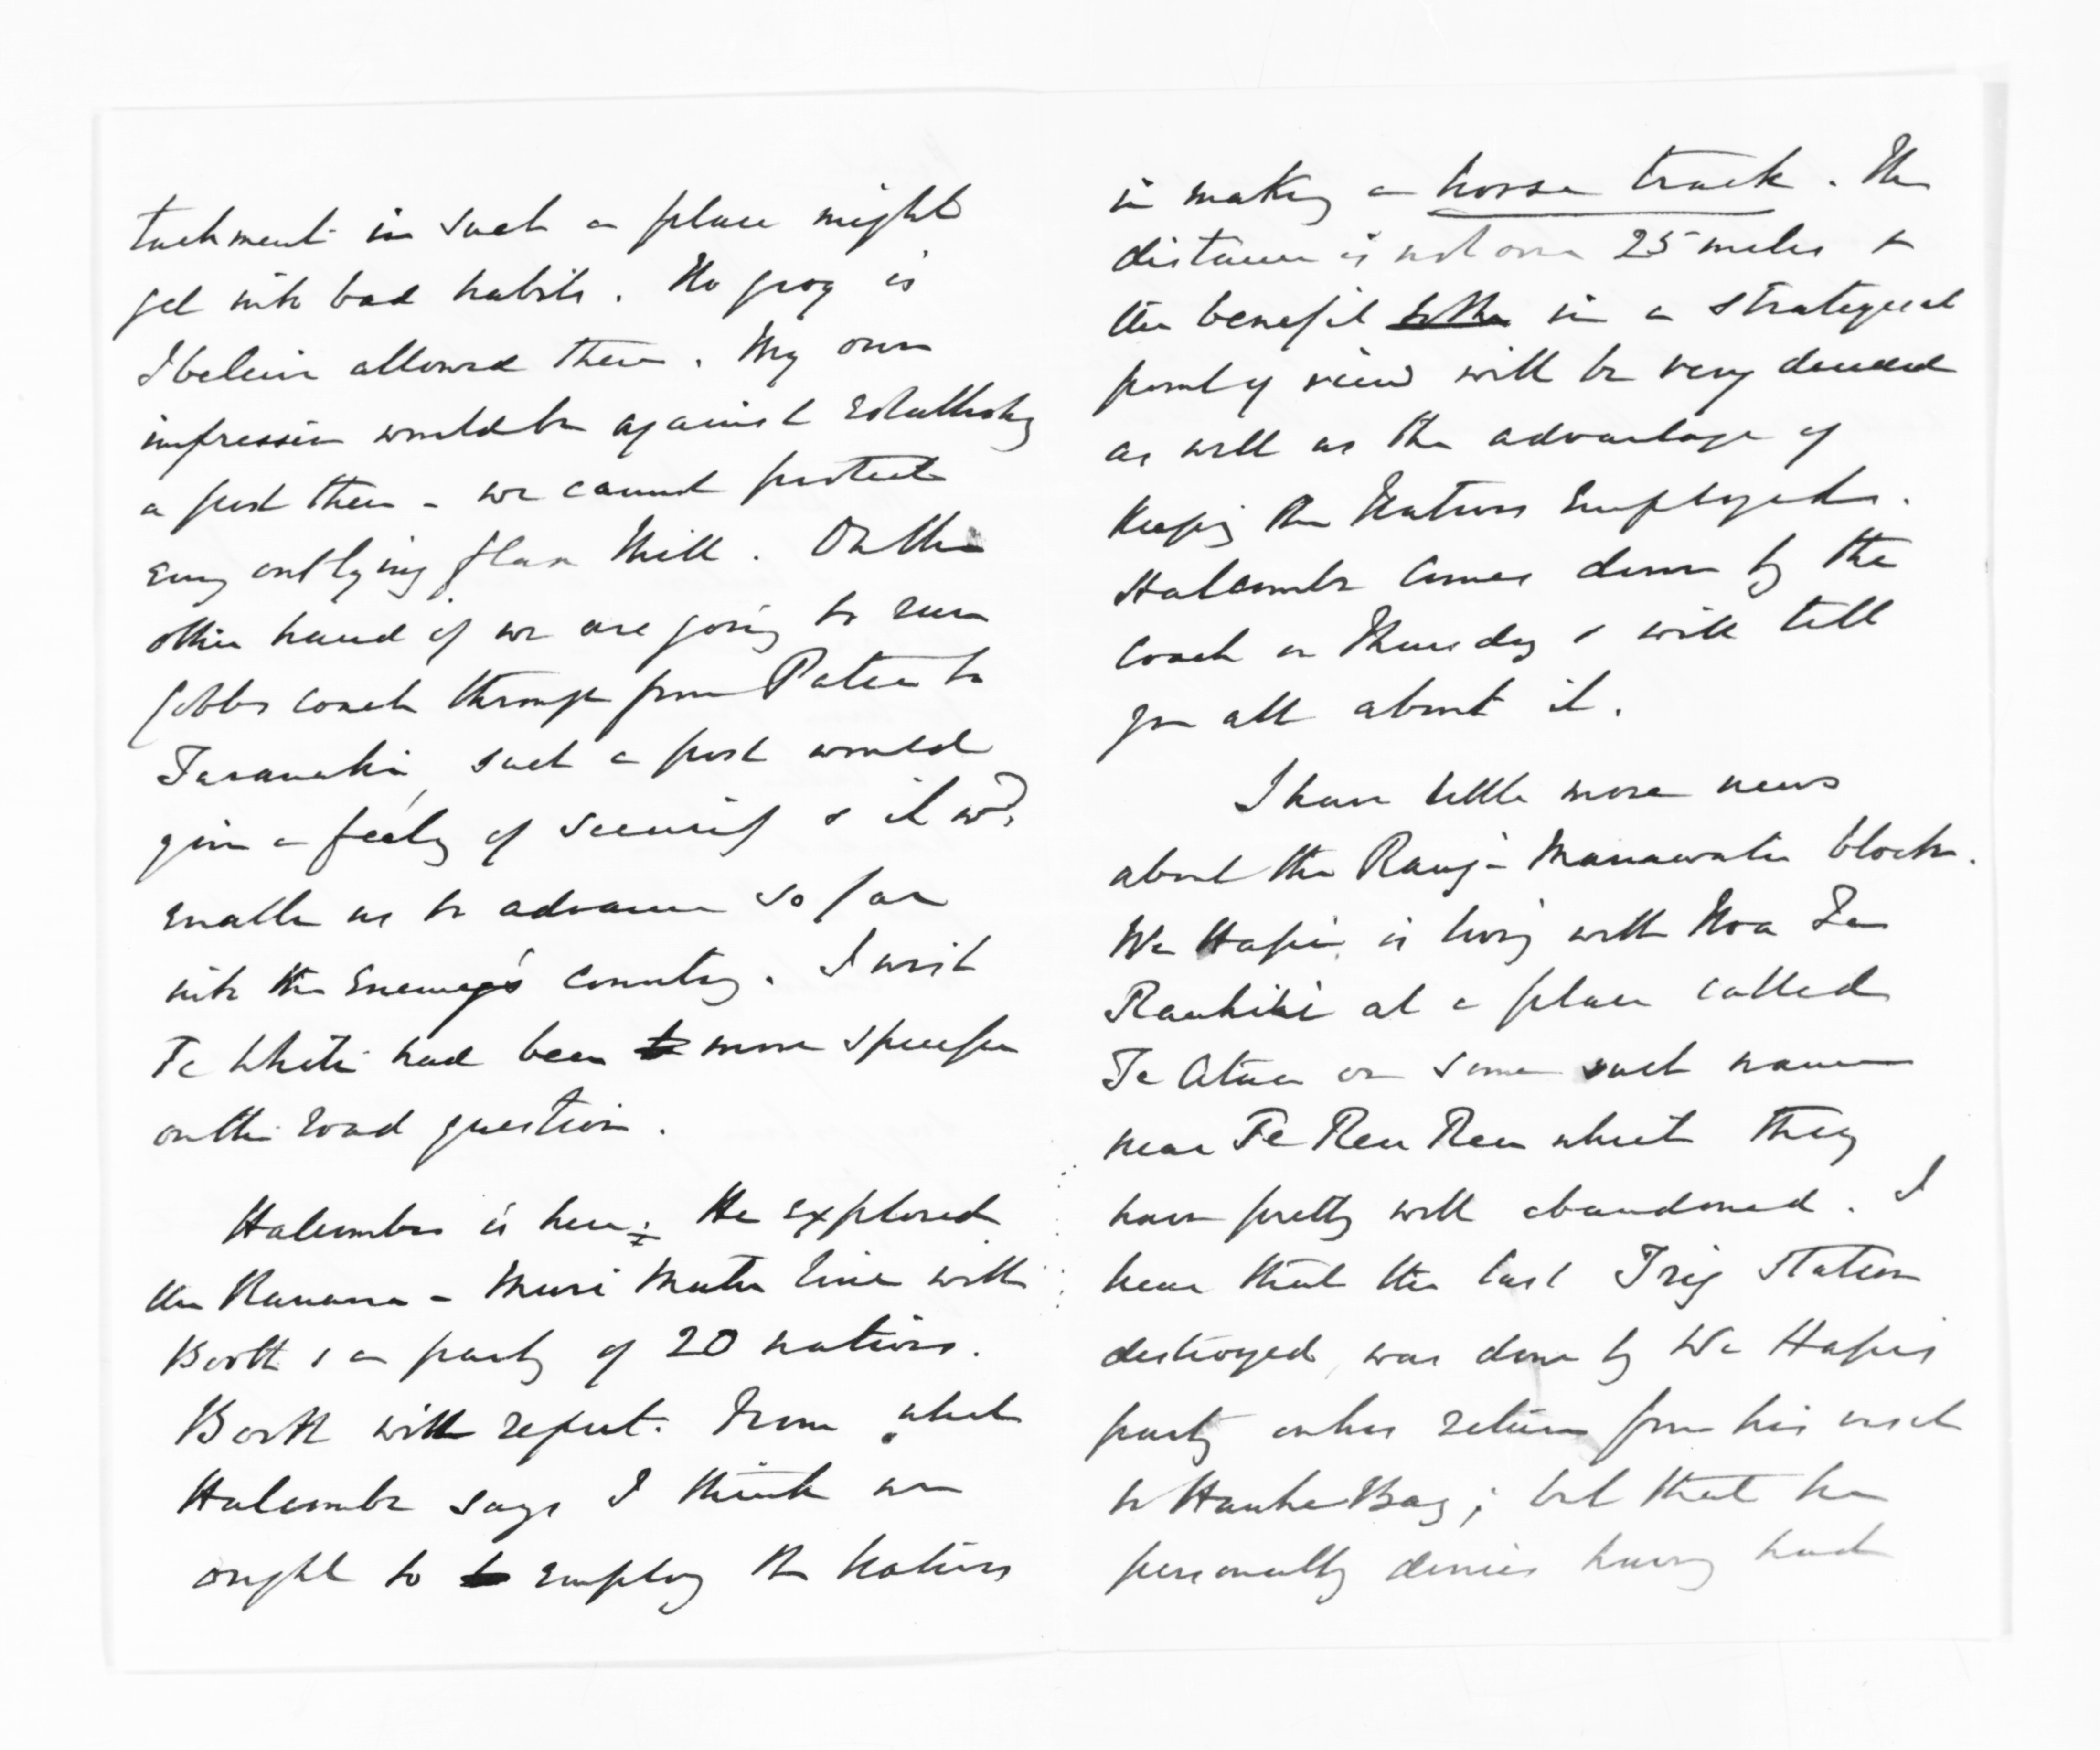 tachment in such a place might
get into bad habits. No grog is
I believe allowed there. My own
impression would be against establishing
a post there - we cannot protect
every outlying flax Mill. On the
other hand if we are going to run
Cobbs coach through from Patea to
Taranaki, such a post would
give a feeling of security & it wd.
enable us to advance so far
into the Enemy's country. I wish
Te Whiti had been more specific
on the road question.
Halcombe is here; He explored
the Ranana - Muri Motu line with
Booth & a party of 20 natives.
Booth will report. From what
Halcombe says I think we
ought to employ the Natives
in making a horse track. The
distance is not over 25 miles &
the benefit to the in a strategical
point of view will be very decided
as well as the advantage of
Keeping the Natives Employed.
Halcombe comes down by the
Coach on Thursday & will tell
you all about it.
I have little more news
about the Rangi-Manawatu block.
We Hapi is living with Noa Te
Rauhihi at a place called
Te Atua or some such name
near Te Reu Reu which they
have pretty well abandoned. I
hear that the last Trig Station
destroyed, was done by We Hapis
party on his return from his visit
to Hawke Bay; but that he
personally denies having had